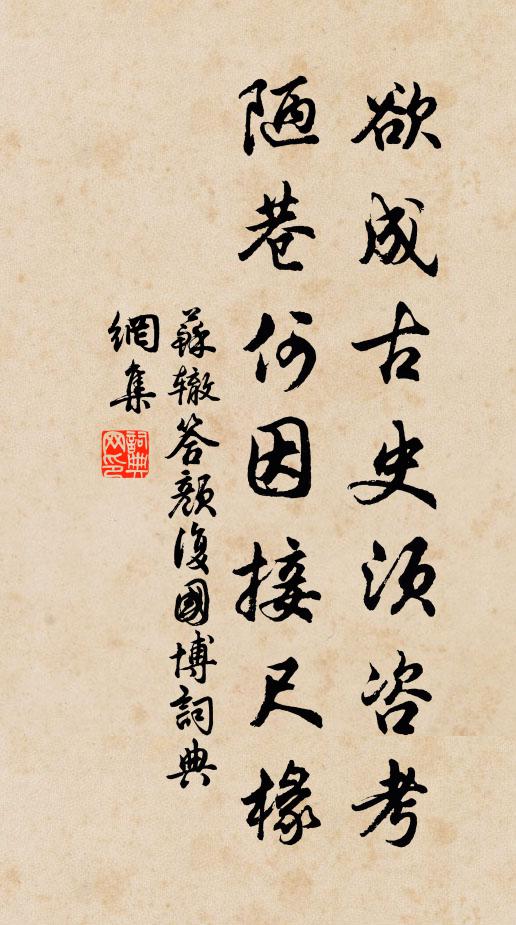 欲成古史須咨考
陋巷何因接尺椽
蘇轍答顏復國博詞典
網集
詞典網印